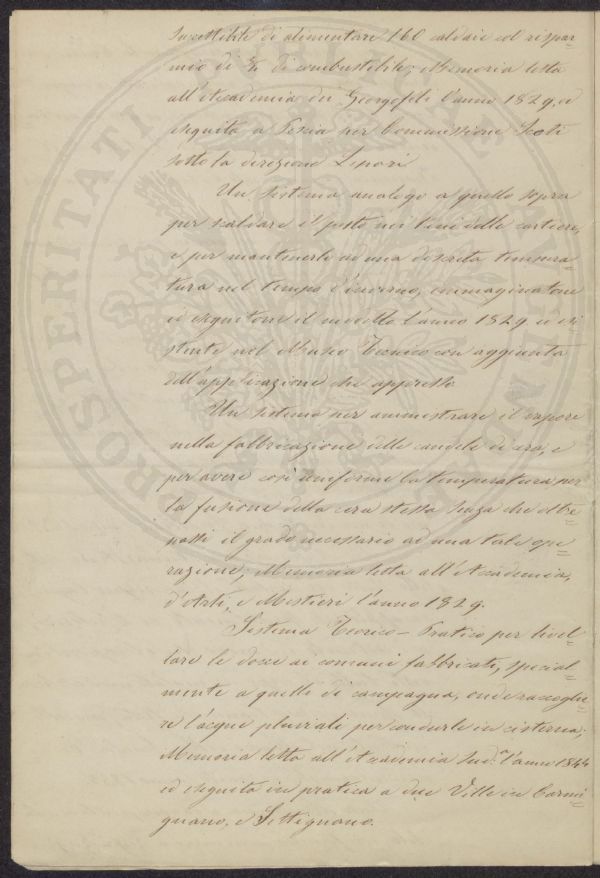 suscettibile di alimentare 160 caldaie col rispar=
mio di di combustibile; Memoria letta
all'Accademia dei Georgofili l'anno 1829, ed
eseguita a Pescia per Commissione Scoti
sotto la direzione
Un sistema analogo a quello sopra
per scaldare il pesto nei tini delle cartiere,
e per mantenerlo ad una discreta tempera=
tura nel tempo d'inverno, immaginatone
ed eseguitone il modello l'anno 1829 ed esi=
stente nel Museo Tecnico con aggiunta
dell'applicazione che appresso
Un sistema per amministrare il vapore
nella fabbricazione delle candele di cera, e
per avere così uniforme la temperatura per
la fusione della cera stessa senza che oltre=
passi il grado necessario ad una tale ope=
razione; Memoria letta all'Accademia,
d'Arti, e Mestieri l'anno 1829.
Sistema Teorico-Pratico per livel=
lare le docce ai comuni fabbricati, special=
mente a quelli di campagna, onde raccoglie=
re l'acque pluviali per condurle in cisterna;
Memoria letta all'Accademia Sud.a l'anno 1844
ed eseguita in pratica a due Ville in Carmi=
gnano, e Settignano.
PROSPERITATI PUBLICAE AUGENDAE